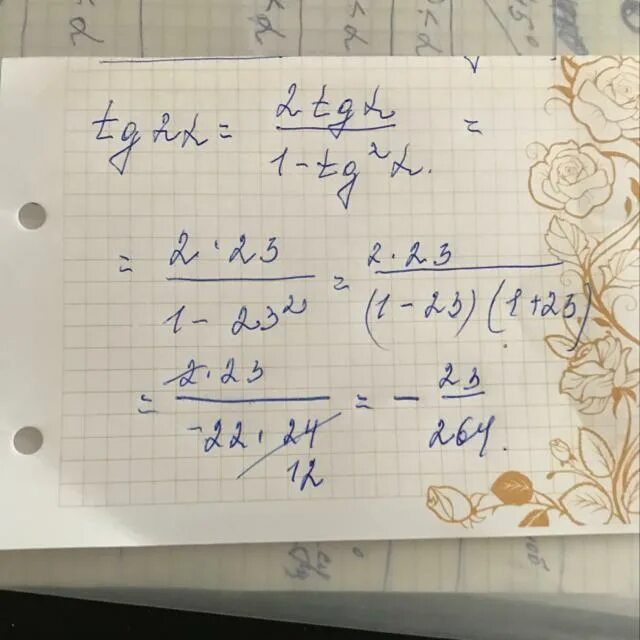 tg2α = 2tgα / 1-tg²α. =
= 2·23 / 1-23² = 2·23 / (1-23)(1+23)
= 2·23 / -22·24 12 = - 23 / 264.